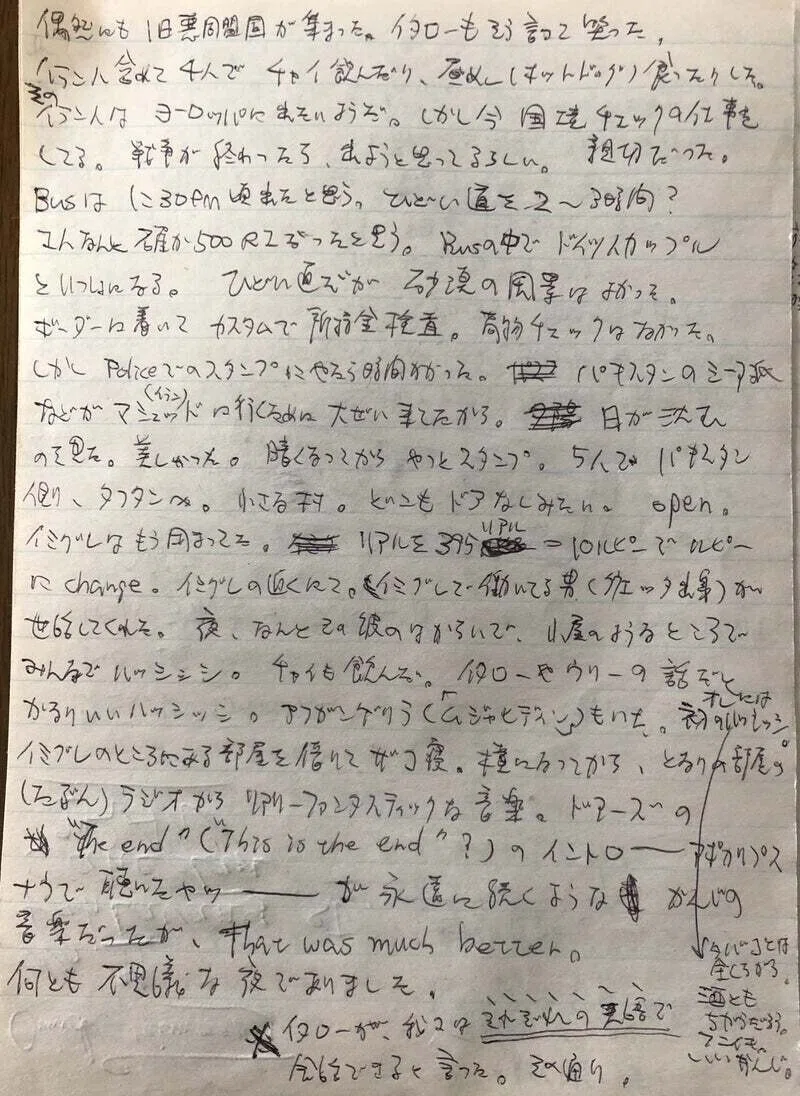 偶然にも旧悪同盟国が集まった。イタローもそう言って笑った。
イラン人含めて4人でチャイ飲んだり、昼めし(ホットドッグ)食ったりした。
そのイラン人はヨーロッパに来たいようだ。しかし今国境チェックの仕事を
してる。戦争が終わったら、出ようと思ってるらしい。親切だった。
Busは 30pm頃来たと思う。ひどい道を2〜3時間?
こんなんと確か500RIだったと思う。Busの中でドイツ人カップル
といっしょになる。ひどい道だが砂漠の風景はよかった。
ボーダーに着いてカスタムで所持金検査。荷物チェックはなかった。
しかしPoliceでのスタンプにやたら時間かかった。パキスタンのシーア派
などがマシュッド(イラン)に行くために大ぜい来てたから。日が沈む
のを見た。美しかった。暗くなってからやっとスタンプ。5人でパキスタン
側、タフタンへ。小さな村。どこもドアなしみたい。open。
イミグレはもう閉まってた。リアルを395リアル=10ルピーでルピー
にchange。イミグレの近くにて。イミグレで働いてる男(クェッタ出身)が
世話してくれた。夜、なんとその彼のはからいで、小屋のようなところで
みんなでハッシッシ。チャイも飲んだ。イタローやウリーの話だと
かなりいいハッシッシ。アフガンゲリラ(「ムジャヒディン」)もいた。オレには初のハッシッシ
イミグレのところにある部屋を借りてザコ寝。横になってから、となりの部屋の
(たぶん)ラジオからリアリーファンタスティックな音楽。ドアーズの
"The end"("This is the end"?)のイントロ──アポカリプス
ナウで聴いたヤツ──が永遠に続くようなかんじの
音楽だったが、that was much better。
何とも不思議な夜でありました。
「タバコとは
全くちがう。
酒とも
ちがうだろう。
いいかんじ。
イタローが、我々はそれぞれの英語で
会話できると言った。その通り。